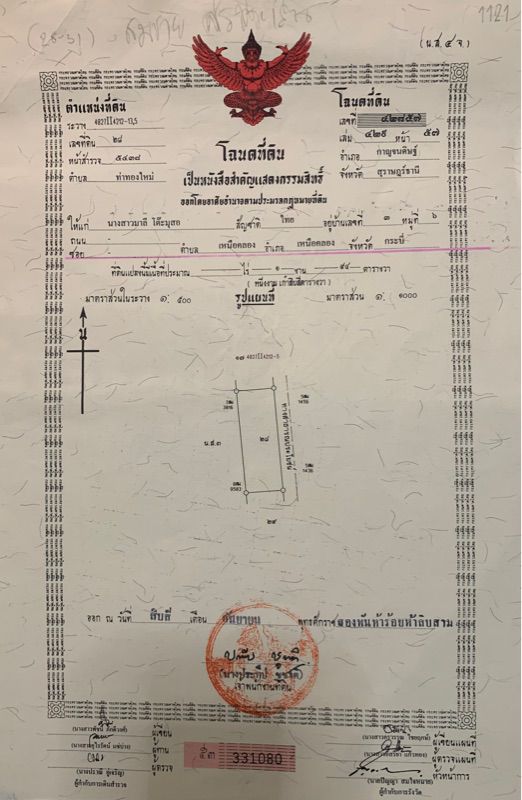 1121
(น.ส.๔ จ.)
ตำแหน่งที่ดิน
ระวาง 4827 II 4212-13,5
เลขที่ดิน ๒๘
หน้าสำรวจ ๕๔๓๘
ตำบล ท่าทองใหม่
โฉนดที่ดิน
เลขที่ ๔๒๘๕๗
เล่ม ๔๒๙ หน้า ๕๗
อำเภอ กาญจนดิษฐ์
จังหวัด สุราษฎร์ธานี
โฉนดที่ดิน
เป็นหนังสือสำคัญแสดงกรรมสิทธิ์
ออกโดยอาศัยอำนาจตามประมวลกฎหมายที่ดิน
ให้แก่ นางสาวมาลี โต๊ะมุสอ สัญชาติ ไทย อยู่บ้านเลขที่ ๓ หมู่ที่ ๖
ถนน -
ซอย - ตำบล เหนือคลอง อำเภอ เหนือคลอง จังหวัด กระบี่
ที่ดินแปลงนี้มีเนื้อที่ประมาณ - ไร่ ๑ งาน ๙๔ ตารางวา
( หนึ่งงาน เก้าสิบสี่ตารางวา )
มาตราส่วนในระวาง ๑: ๕๐๐ รูปแผนที่ มาตราส่วน ๑: ๑๐๐๐
น
4827 II 4212-5
น.ส.๓
๒๘
ทางสาธารณประโยชน์
๒๙
ออก ณ วันที่ สิบสี่ เดือน กันยายน พุทธศักราช สองพันห้าร้อยห้าสิบสาม
เจ้าพนักงานที่ดิน
ผู้เขียน
ผู้ทาน
ผู้ตรวจ
ผู้กำกับการเดินสำรวจ
331080
ผู้เขียนแผนที่
ผู้ตรวจแผนที่
หัวหน้าการ
ผู้กำกับการรังวัด